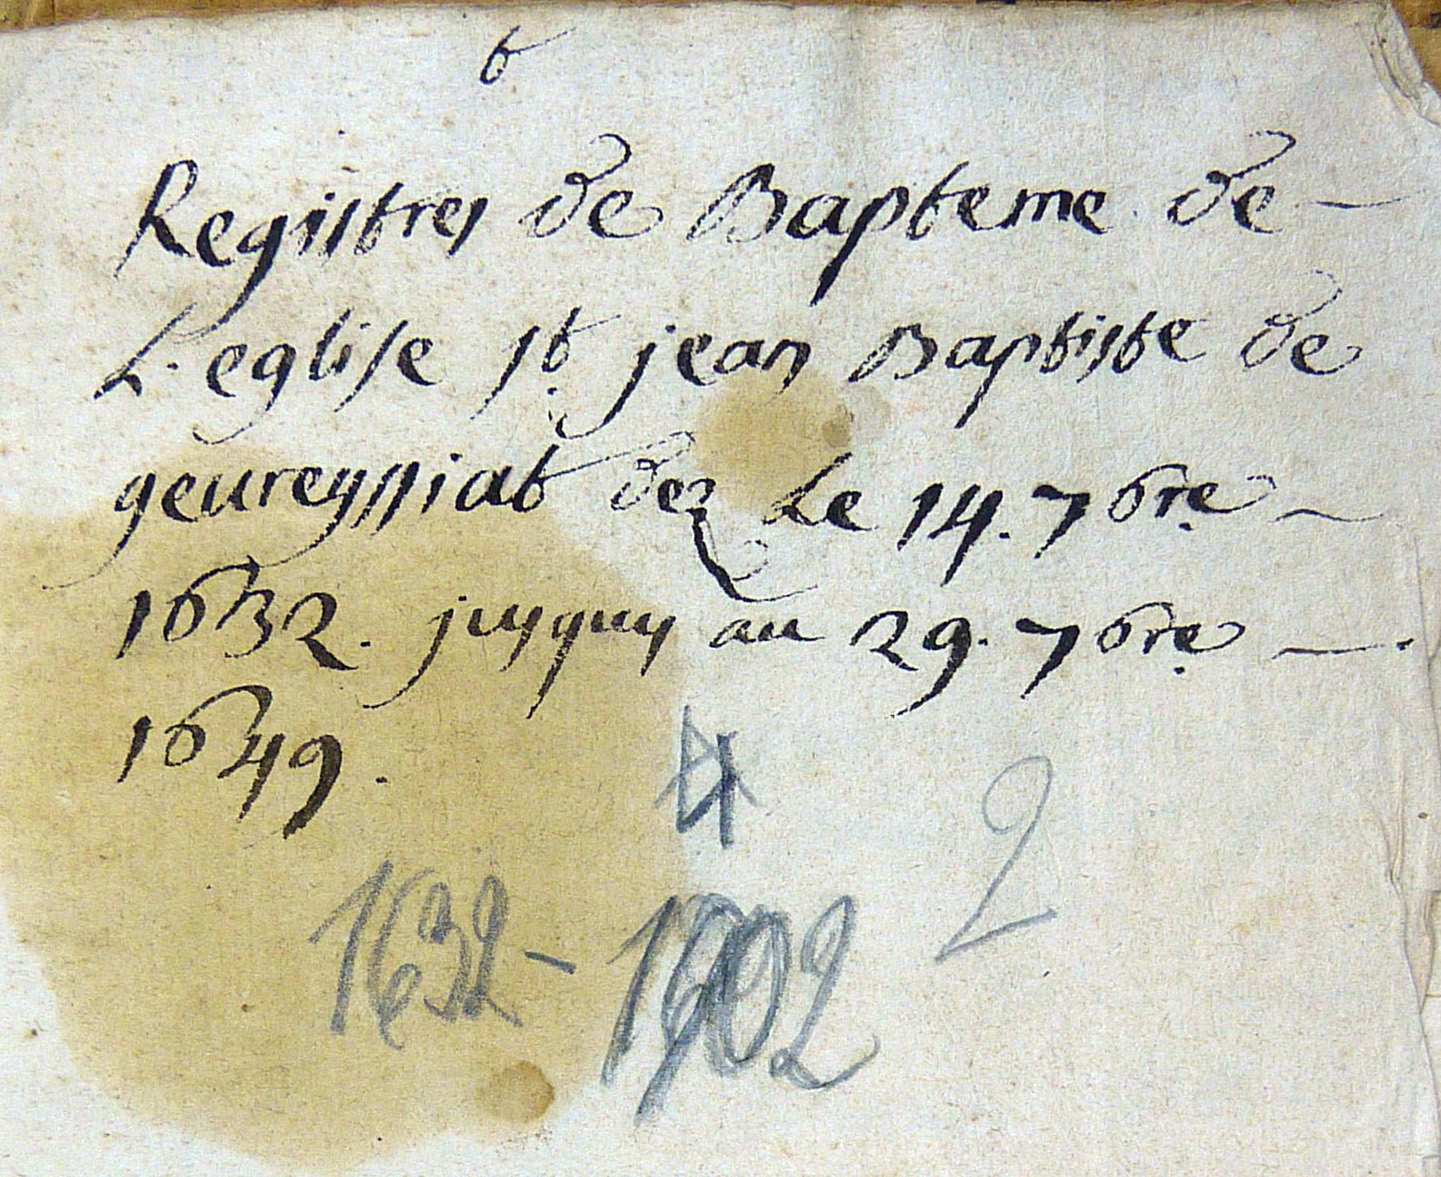 6
Registres de Bapteme de —
L'eglise st. jean Baptiste de
geureyssiat dez Le 14. 7bre —
1632. jusques au 29. 7bre —.
1649.
2
1632 -